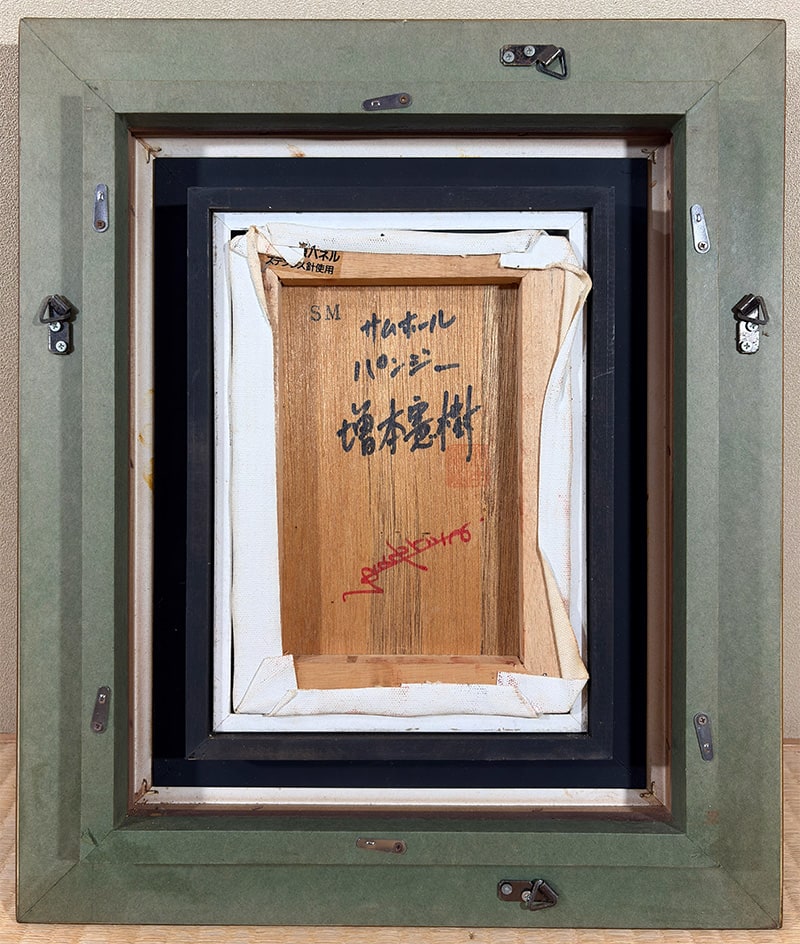 パネル
ステンレス針使用
SM
サムホール
パンジー
増本寛樹